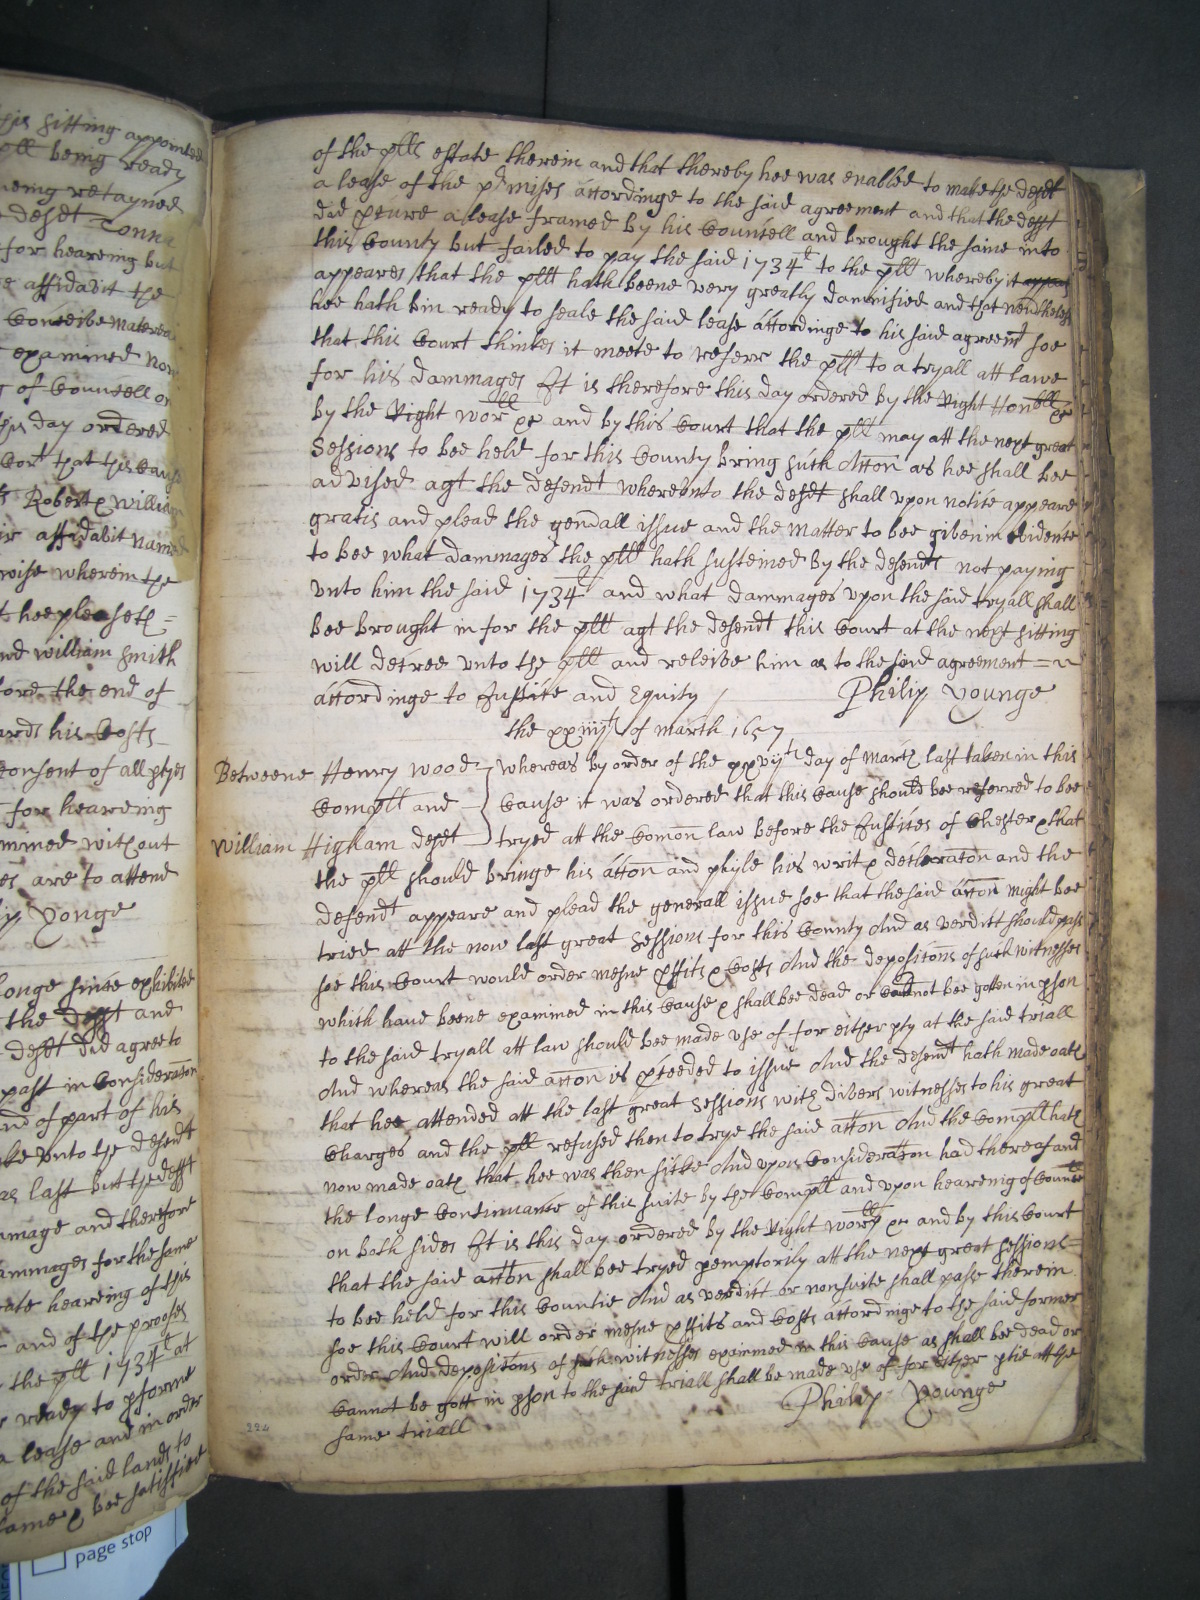 his sitting appointed
pll being ready
being retayned
defdt Conna
for heareing but
affidavit the
Conceive Materea
examined now
of Councell on
this day ordered
Cort that this Cause
Robert & William
affidavit named
wise wherein the
hee pleaseth =
and william Smith
fore the end of
ards his Costs
Consent of all ptyes
for heareing
mined without
es are to attend
Yonge
longe since exhibited
the defft and
defdt did agree to
past in Consideracon
and of part of his
ke unto the defendt
as last but the defft
mage and therefore
ammages for the same
heareing of this
and of the proofes
the pll 1734l at
ready to pforme
a lease and in order
of the said lands to
same & bee satisfied
of the plls estate therein and that thereby hee was enabled to make the defdt
a lease of the pmises accordinge to the said agreement and that the defft
did pcure a lease framed by his Councell and brought the same into
this County but failed to pay the said 1734l to the pll whereby it appeares
appeares that the pll hath beene very greatly damnified and that neverthelesse
hee hath bin ready to seale the said lease accordinge to his said agreemt soe
that this Court thinkes it meete to referr the pll to a tryall att lawe
for his dammages It is therefore this day ordered by the Right Honble &c
by the Right worll &c and by this Court that the pll may att the next great
Sessions to bee held for this County bring such Accon as hee shall bee
advised agt the defendt whereunto the defdt shall upon notice appeare
gratis and plead the genall issue and the Matter to bee given in evidence
to bee what dammages the pll hath susteined by the defendts not paying
unto him the said 1734l and what dammages upon the said tryall shall
bee brought in for the pll agt the defendt this Court at the next sitting
will decree unto the pll and releive him as to the said agreement =
accordinge to Justice and Equity Philip Younge
the xxiiijth of March 1657
Betweene Henry Wood whereas by order of the xxvijth day of March last taken in this
Compllt and Cause it was ordered that this Cause should bee referred to bee
William Higham defdt tryed att the Comon law before the Justices of Chester & that
the pll should bringe his accon and phyle his writ & declaracon and the
defendt appeare and plead the generall issue soe that the said accon might bee
tried att the now last great Sessions for this County And as verdict should pass
soe this Court would order mesne pfits & Costs And the deposicons of such witnesses
which have beene examined in this Cause & shall bee dead or cannot bee gotten in pson
to the said tryall att law should bee made use of for either pty at the said triall
And whereas the said accon is pceeded to issue And the defendt hath made oath
that hee attended att the last great Sessions with divers witnesses to his great
Charges and the pll refused then to trye the said accon And the Compllt hath
now made oath that hee was then sicke And upon Consideracon had thereof and
the longe Continuance of this suite by the Compllt and upon heareinig of Councell
on both sides It is this day ordered by the Right worll &c and by this Court
that the said accon shall bee tryed pemptorily att the next great Sessions =
to bee held for this Countie And as verdict or nonsuite shall passe therein
soe this Court will order mesne pfits and Costs accordinge to the said former
order And deposicons of such witnesses examined in this Cause as shall bee dead or
Cannot be gott in pson to the said triall shall be made use of for either ptie att the
same triall Philip Younge
224
page stop